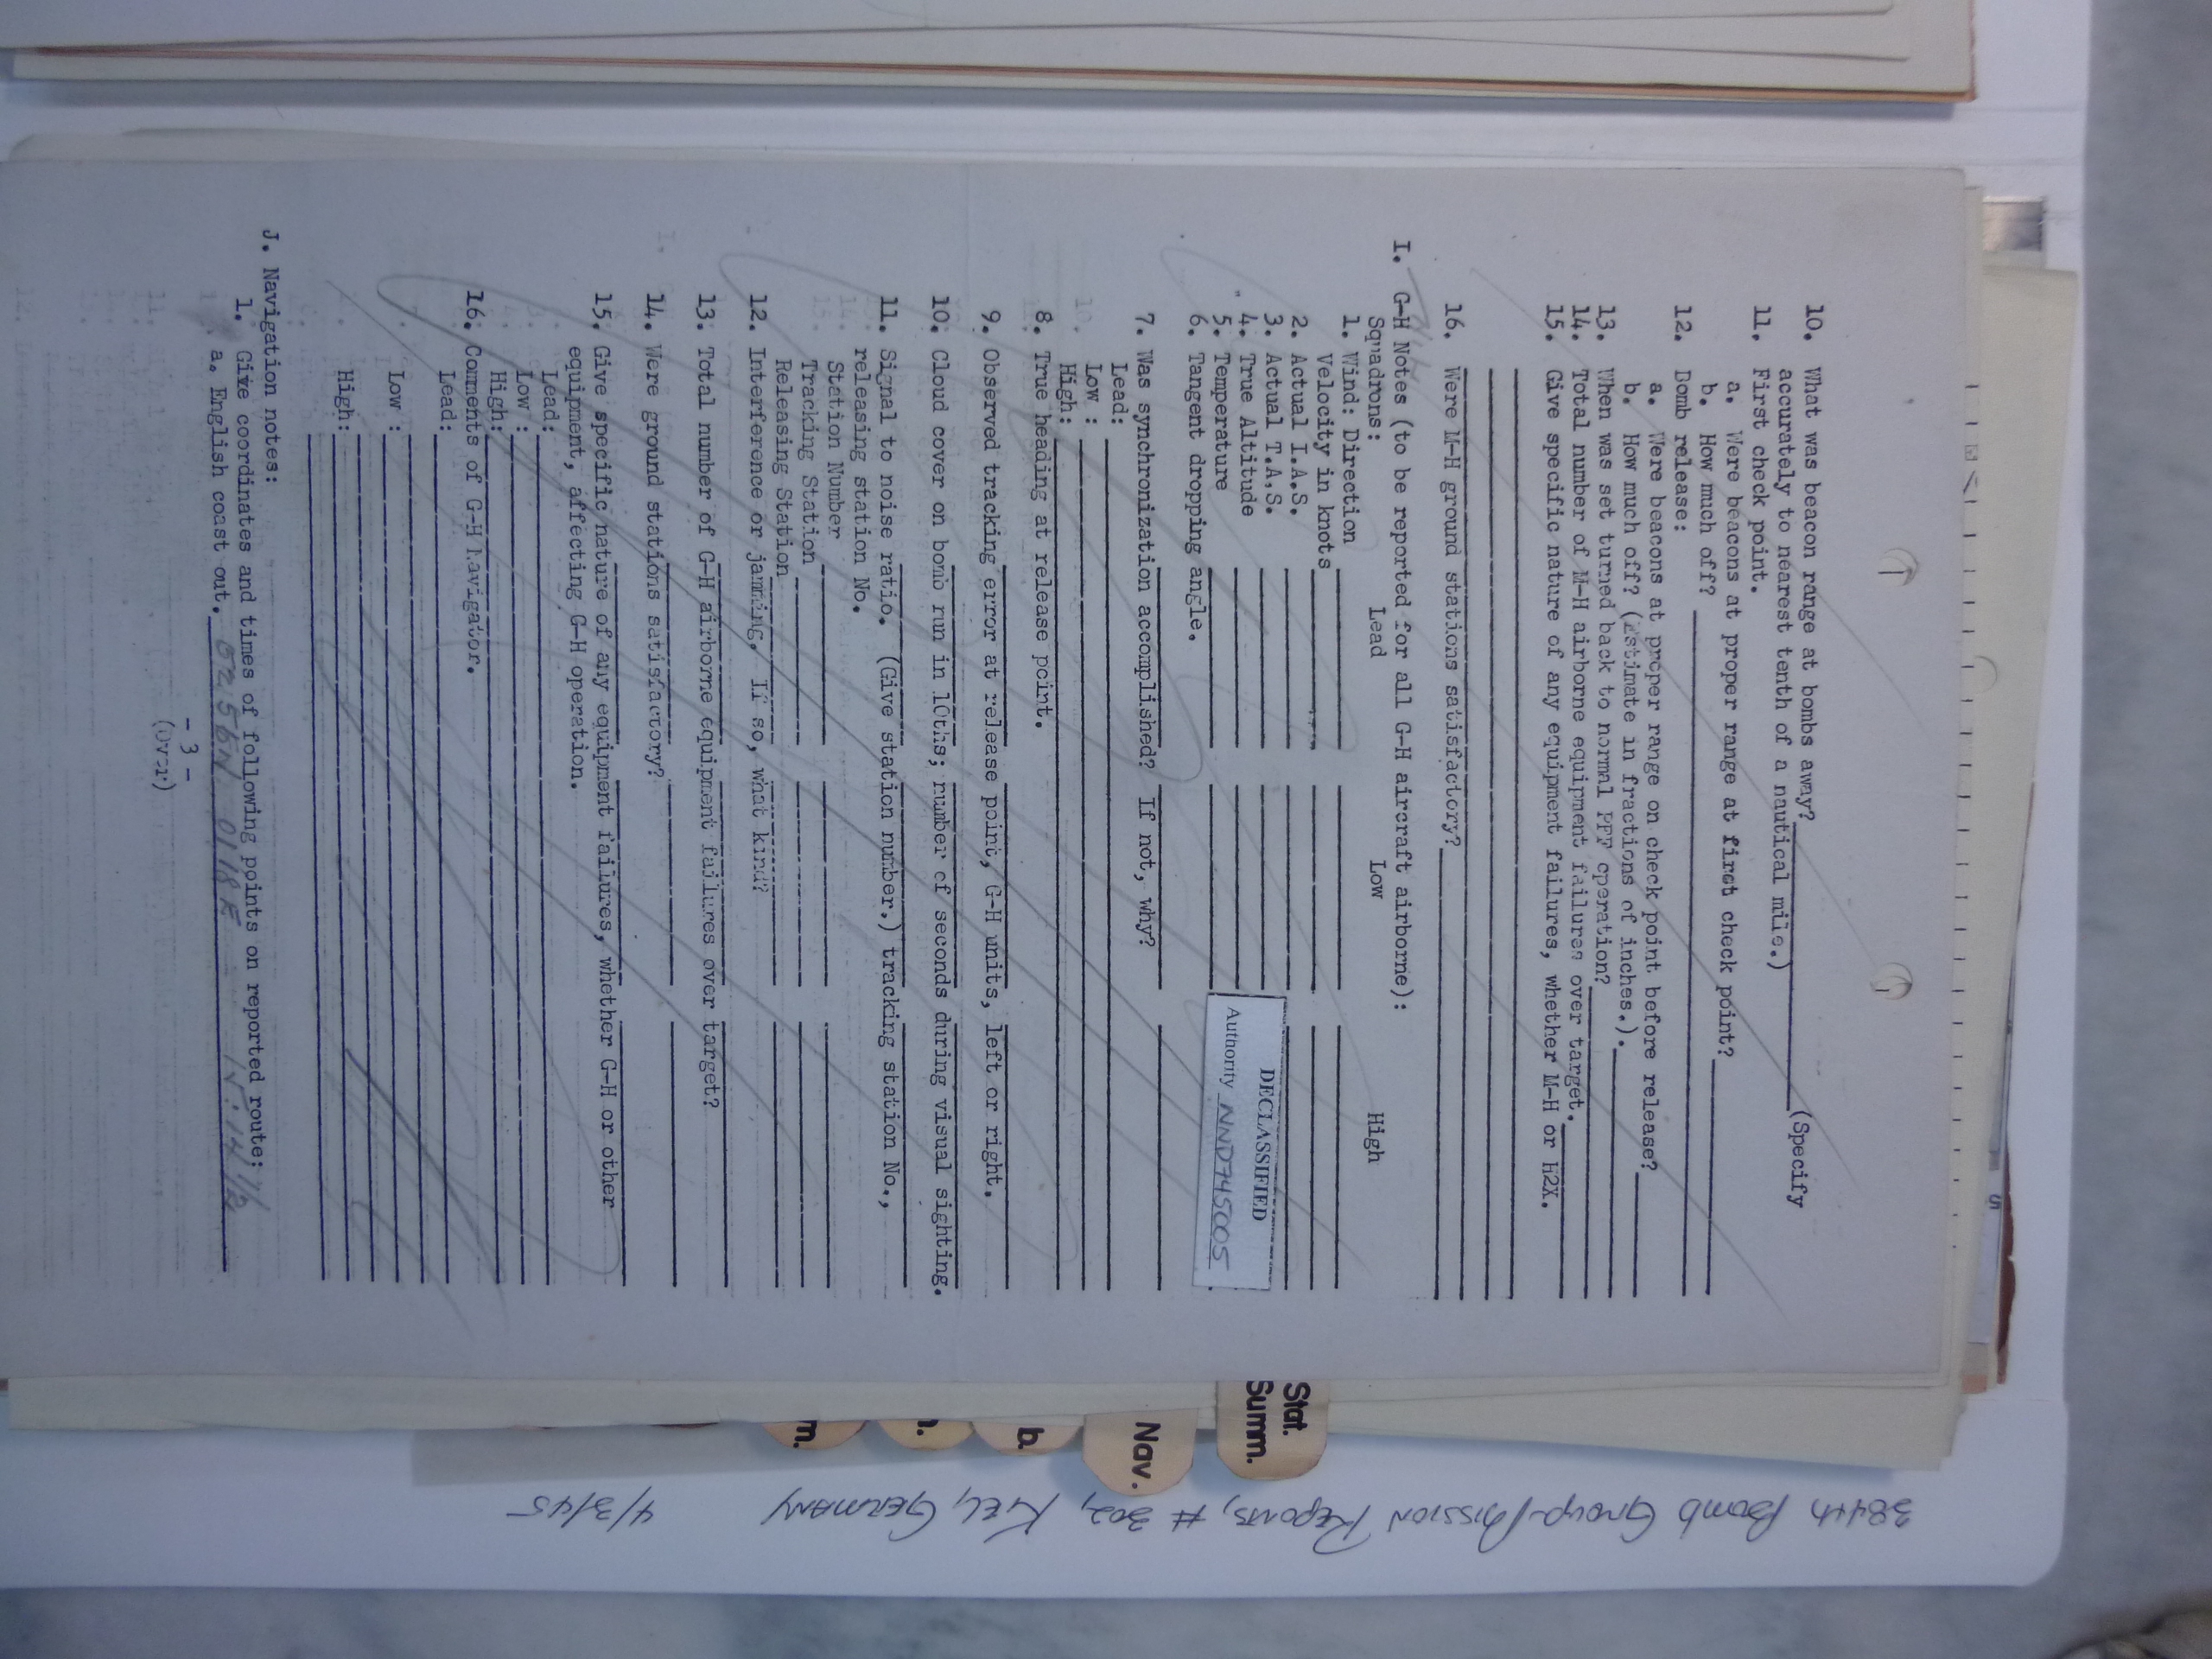 10. What was beacon range at bombs away? (Specify
accurately to nearest tenth of a nautical mile.)
11. First check point.
a. Were beacons at proper range at first check point?
b. How much off?
12. Bomb release:
a. Were beacons at proper range on check point before release?
b. How much off? (Estimate in fractions of inches.).
13. When was set turned back to normal PFF operation?
14. Total number of M-H airborne equipment failures over target.
15. Give specific nature of any equipment failures, whether M-H or H2X.
16. Were M-H ground stations satisfactory?
I. G-H Notes (to be reported for all G-H aircraft airborne):
Squadrons: Lead Low High
1. Wind: Direction
Velocity in knots
2. Actual I.A.S.
3. Actual T.A.S.
4. True Altitude
5. Temperature
6. Tangent dropping angle.
DECLASSIFIED
Authority NND745005
7. Was synchronization accomplished? If not, why?
Lead:
Low :
High:
8. True heading at release point.
9. Observed tracking error at release point, G-H units, left or right.
10. Cloud cover on bomb run in 10ths; number of seconds during visual sighting.
11. Signal to noise ratio. (Give station number.) tracking station No.,
releasing station No.
Station Number
Tracking Station
Releasing Station
12. Interference or jamming. If so, what kind?
13. Total number of G-H airborne equipment failures over target?
14. Were ground stations satisfactory?
15. Give specific nature of any equipment failures, whether G-H or other
equipment, affecting G-H operation.
Lead:
Low :
High:
16. Comments of G-H Navigator.
Lead:
Low :
High:
J. Navigation notes:
1. Give coordinates and times of following points on reported route:
a. English coast out. 5256N 0118E
- 3 -
(Over)
Stat.
Summ.
Nav.
b.
m.
384th Bomb Group-Mission Reports, # 302, Kiel, Germany 4/3/45